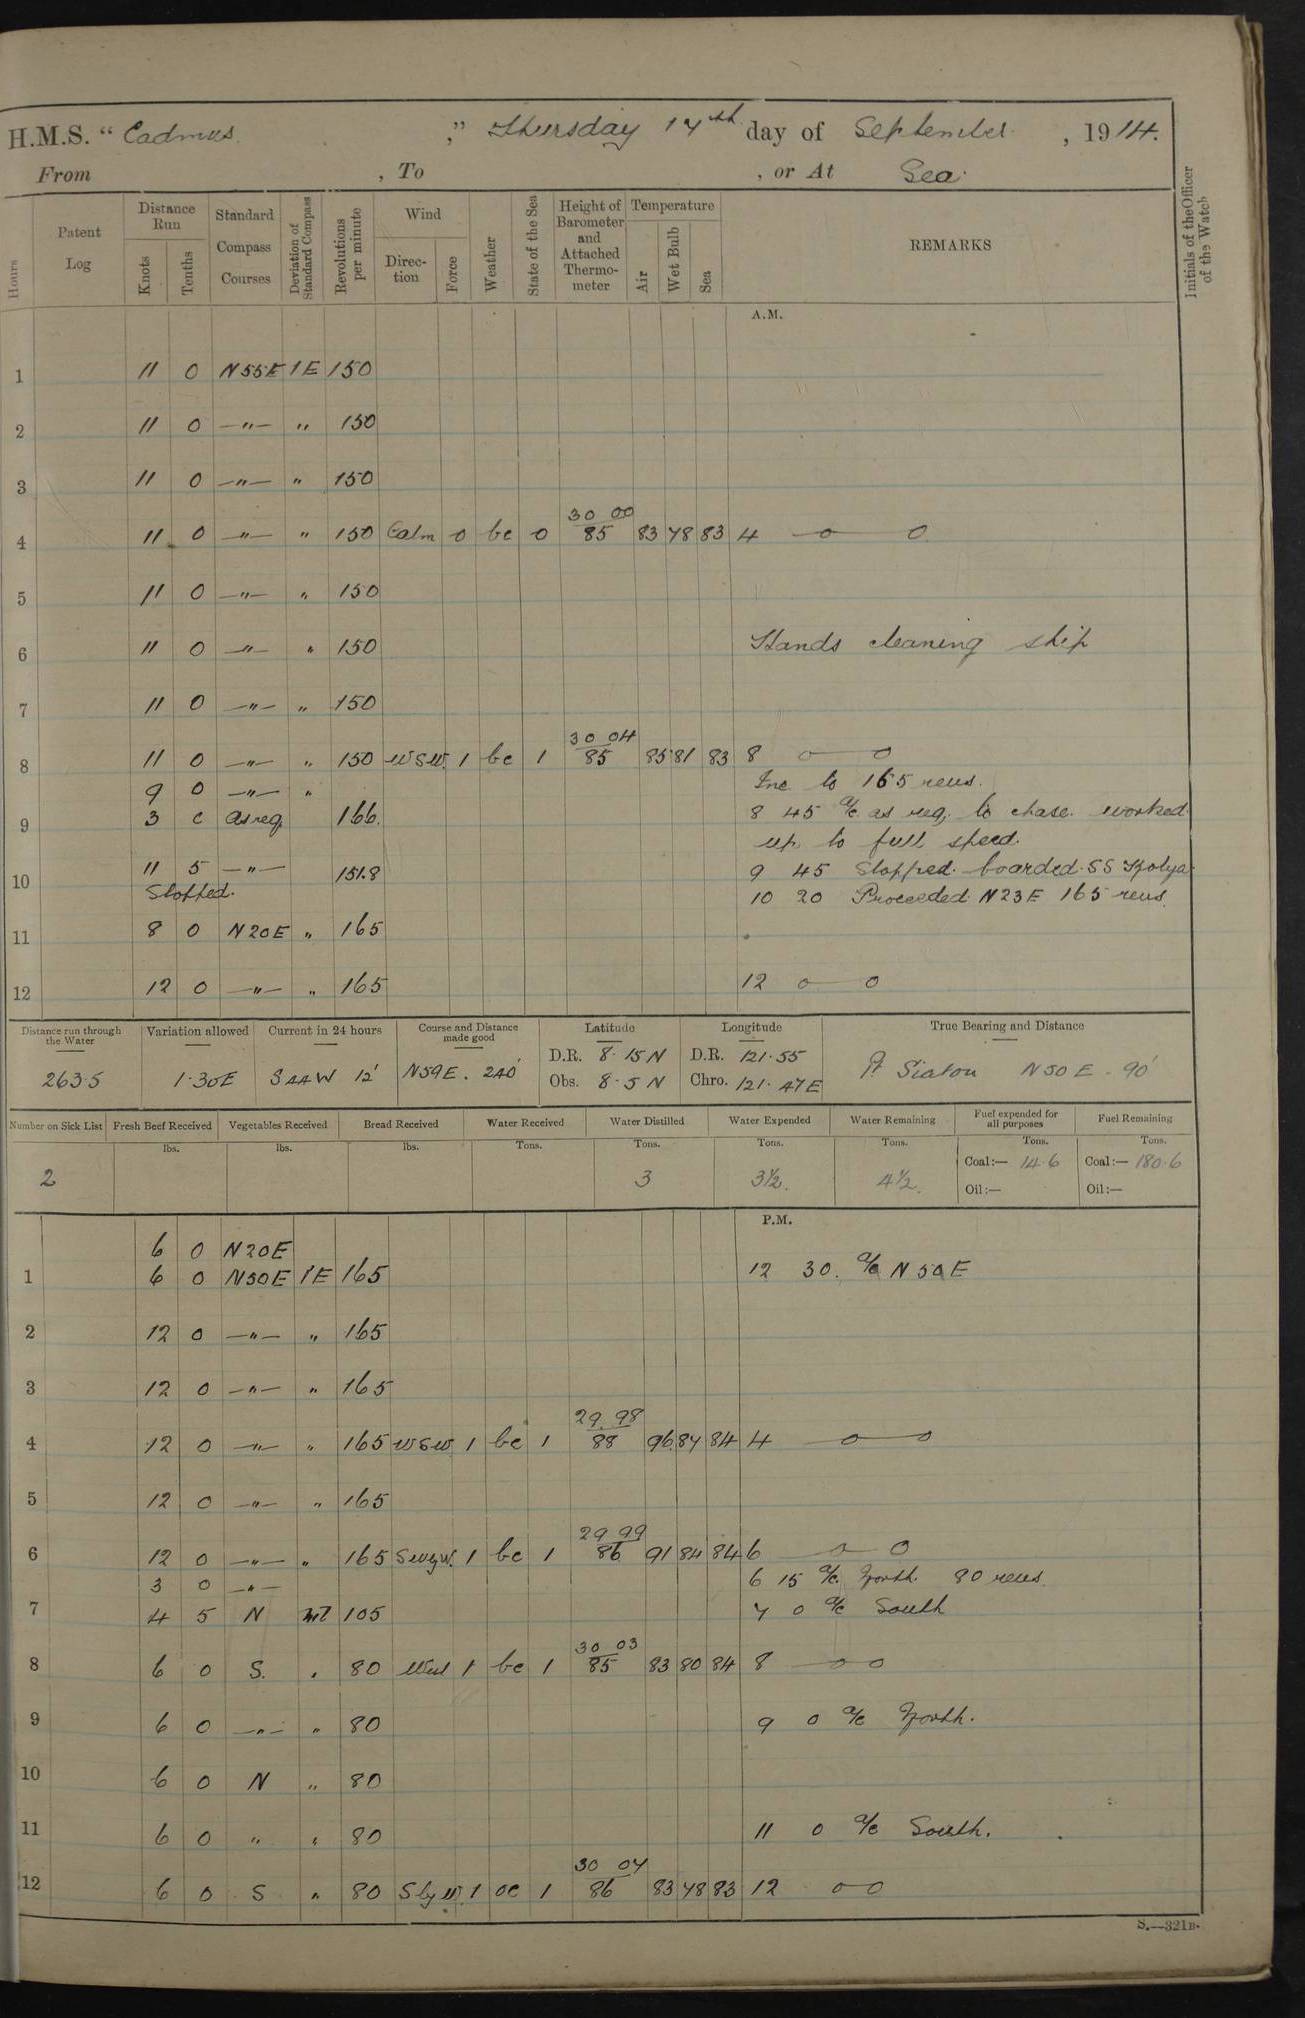 H.M.S. “ Cadmus ,” Thursday 17th day of September , 1914.
From , To , or At Sea.
Hours
Patent Log
Distance Run
Knots
Tenths
Standard Compass Courses
Deviation of Standard Compass
Revolutions per minute
Wind
Direction
Force
Weather
State of the Sea
Height of Barometer and Attached Thermometer
Temperature
Air
Wet Bulb
Sea
REMARKS
Initials of the Officer of the Watch
A.M.
1 11 0 N55E 1E 150
2 11 0 —"— " 150
3 11 0 —"— " 150
4 11 0 —"— " 150 Calm 0 bc 0 30 00 85 83 78 83 4 o—o
5 11 0 —"— " 150
6 11 0 —"— " 150 Hands cleaning ship
7 11 0 —"— " 150
8 11 0 —"— " 150 WSW. 1 bc 1 30 04 85 85 81 83 8 o—o
9 0 —"— " Inc to 165 revs.
9 3 as req. 166. 8 45 a/c as req. to chase. worked
up to full speed.
10 11 5 —"— 151.8 9 45 Stopped. boarded. SS
Stopped. 10 20 Proceeded N23E 165 revs.
11 8 0 N20E " 165
12 12 0 —"— " 165 12 o—o
Distance run through the Water
263.5
Variation allowed
1.30E
Current in 24 hours
12'
Course and Distance made good
N59E. 240'
Latitude
D.R. 8.15N
Obs. 8.5N
Longitude
D.R. 121.55
Chro. 121.47E
True Bearing and Distance
Pt Siaton N50E. 90'
Number on Sick List
2
Fresh Beef Received
lbs.
Vegetables Received
lbs.
Bread Received
lbs.
Water Received
Tons.
Water Distilled
Tons.
3
Water Expended
Tons.
3½.
Water Remaining
Tons.
4½.
Fuel expended for all purposes
Tons.
Coal:— 14.6
Oil:—
Fuel Remaining
Tons.
Coal:— 180.6
Oil:—
P.M.
6 0 N20E
1 6 0 N50E 1E 165 12 30. a/c N50E
2 12 0 —"— " 165
3 12 0 —"— " 165
4 12 0 —"— " 165 WSW. 1 bc 1 29.98 88 96 87 84 4 o—o
5 12 0 —"— " 165
6 12 0 —"— " 165 SWbyW. 1 bc 1 29 99 86 91 84 84 6 o—o
3 0 —"— 6 15 a/c. North. 80 revs.
7 4 5 N 105 7 0 a/c South
8 6 0 S. " 80 West 1 bc 1 30 03 85 83 80 84 8 o—o
9 6 0 —"— " 80 9 0 a/c North.
10 6 0 N " 80
11 6 0 " " 80 11 0 a/c South.
12 6 0 S " 80 SbyW. 1 oc 1 30 04 86 83 78 83 12 o—o
S.—321B.